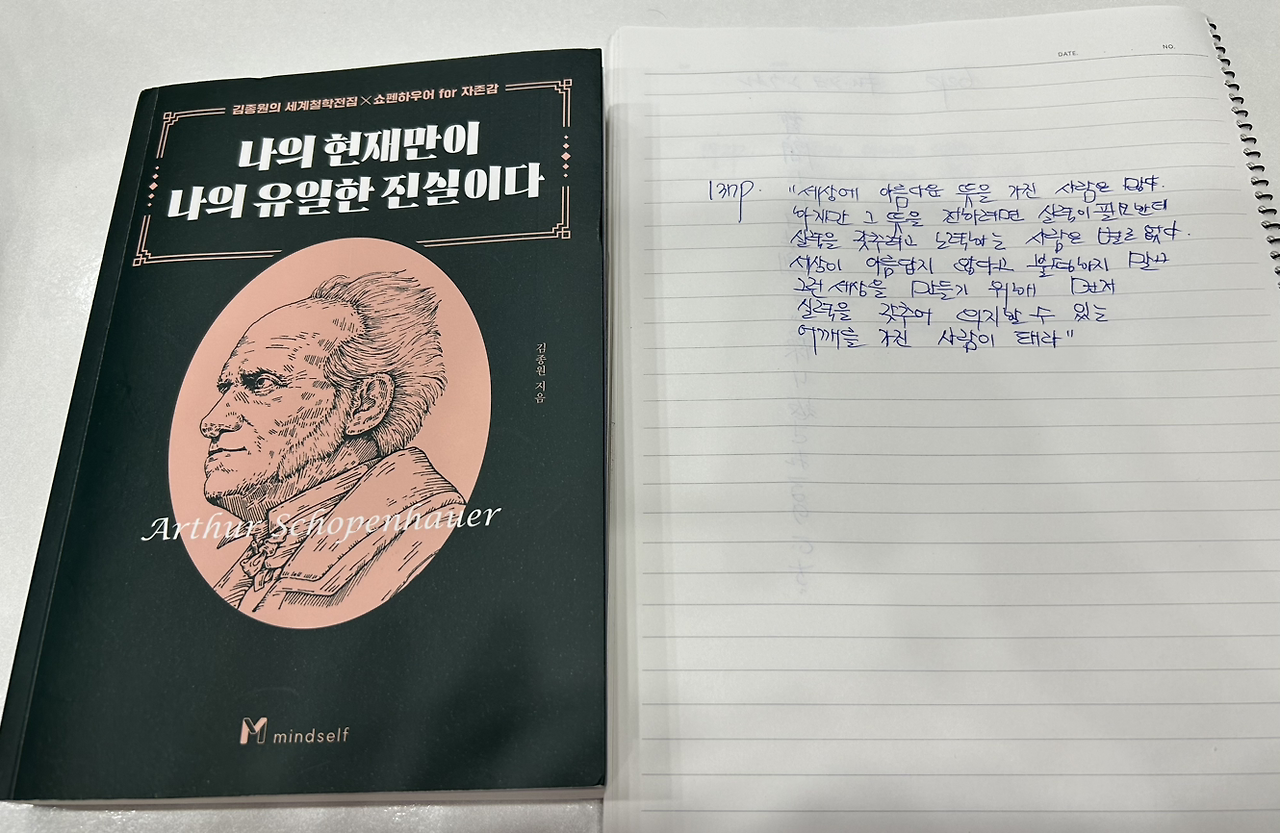 김종원의 세계철학전집 × 쇼펜하우어 for 자존감
나의 현재만이
나의 유일한 진실이다
김종원 지음
Arthur Schopenhauer
mindself
DATE.
NO.
137p. "세상에 아름다운 뜻을 가진 사람은 많다.
하지만 그 뜻을 전하려면 실력이 필요한데
실력을 갖추려고 노력하는 사람은 별로 없다.
세상이 아름답지 않다고 불평하지 말고
그런 세상을 만들기 위해 먼저
실력을 갖추어 의지할 수 있는
어깨를 가진 사람이 돼라"